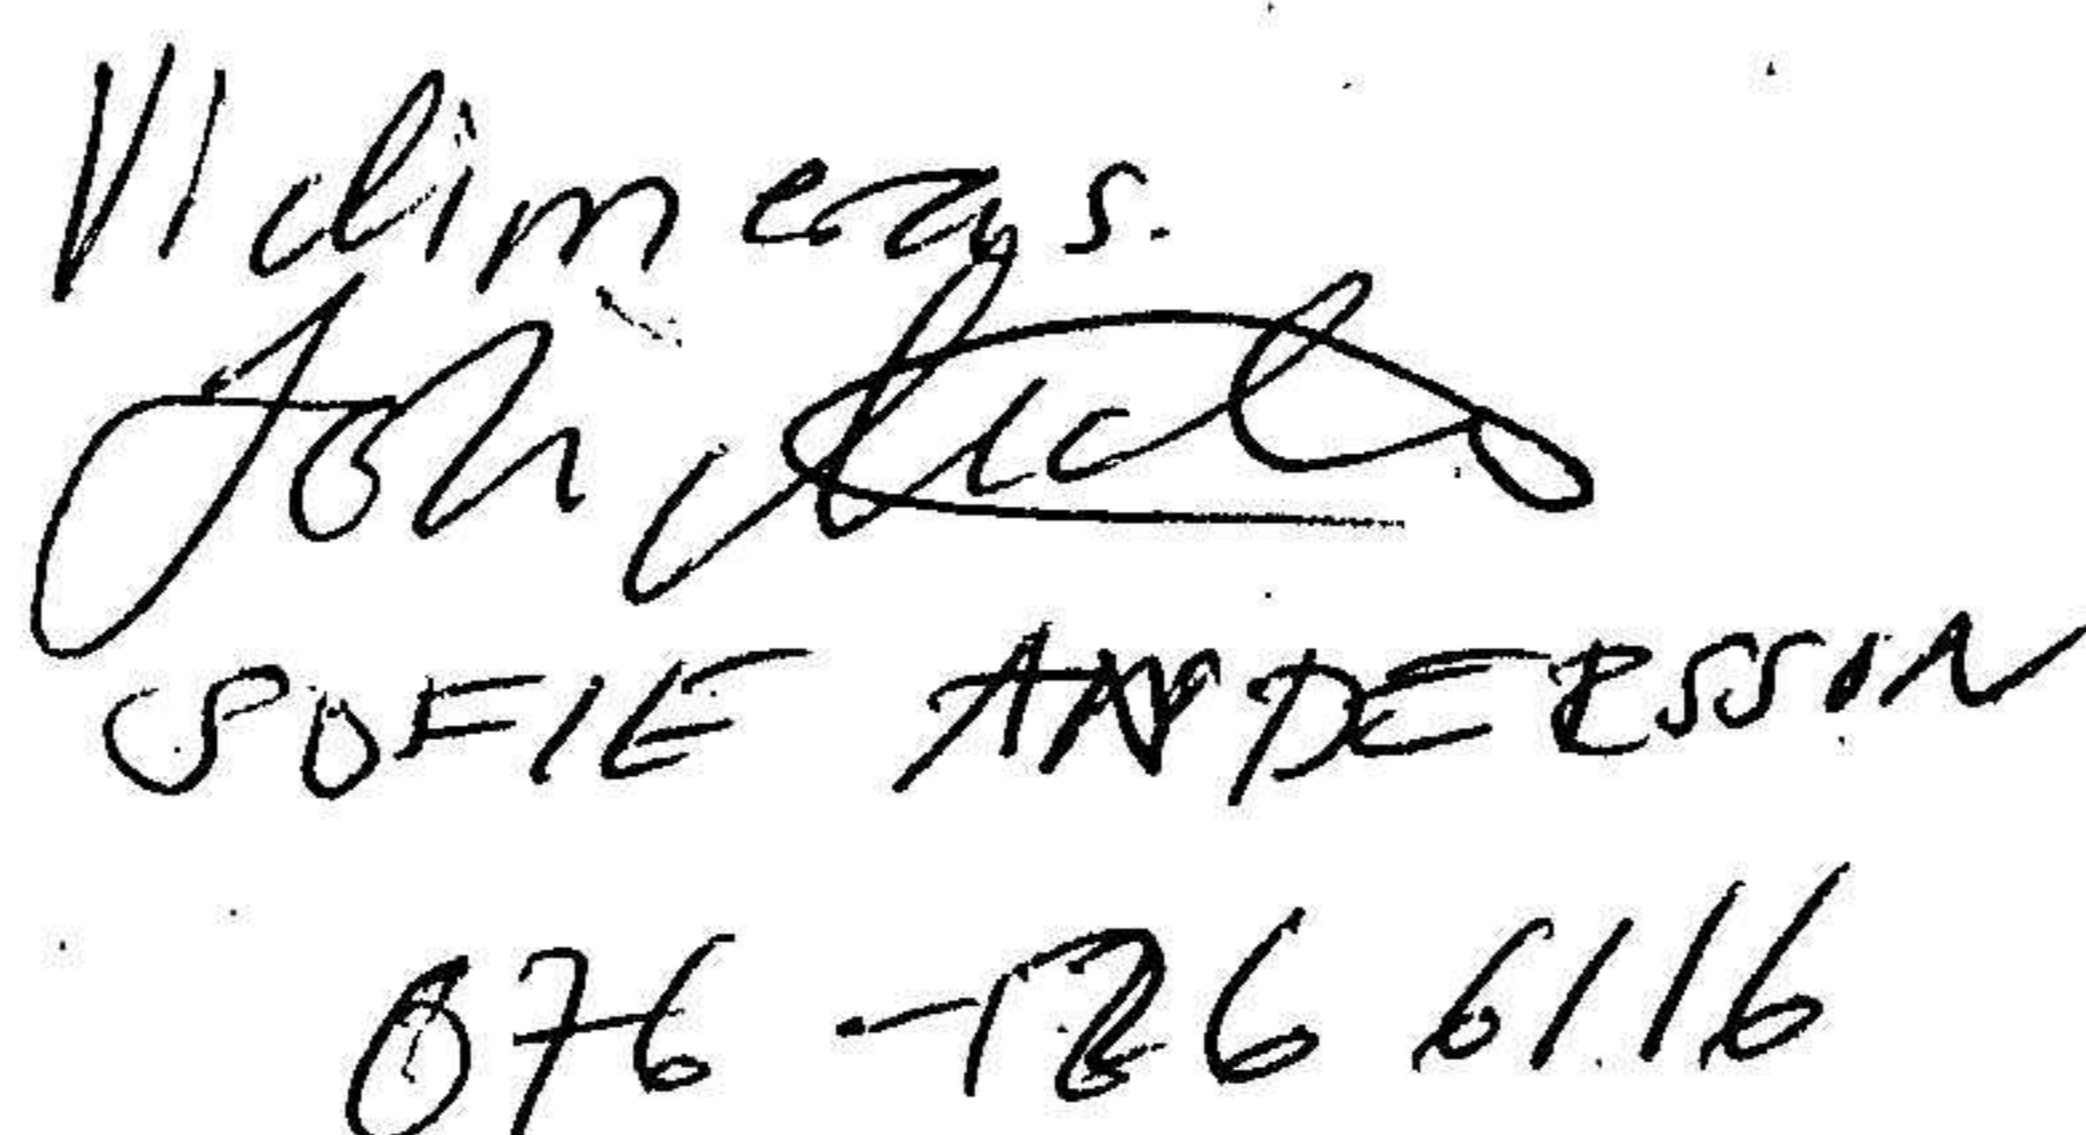 Vidimeras.
SOFIE ANDERSSON
076-126 61 16